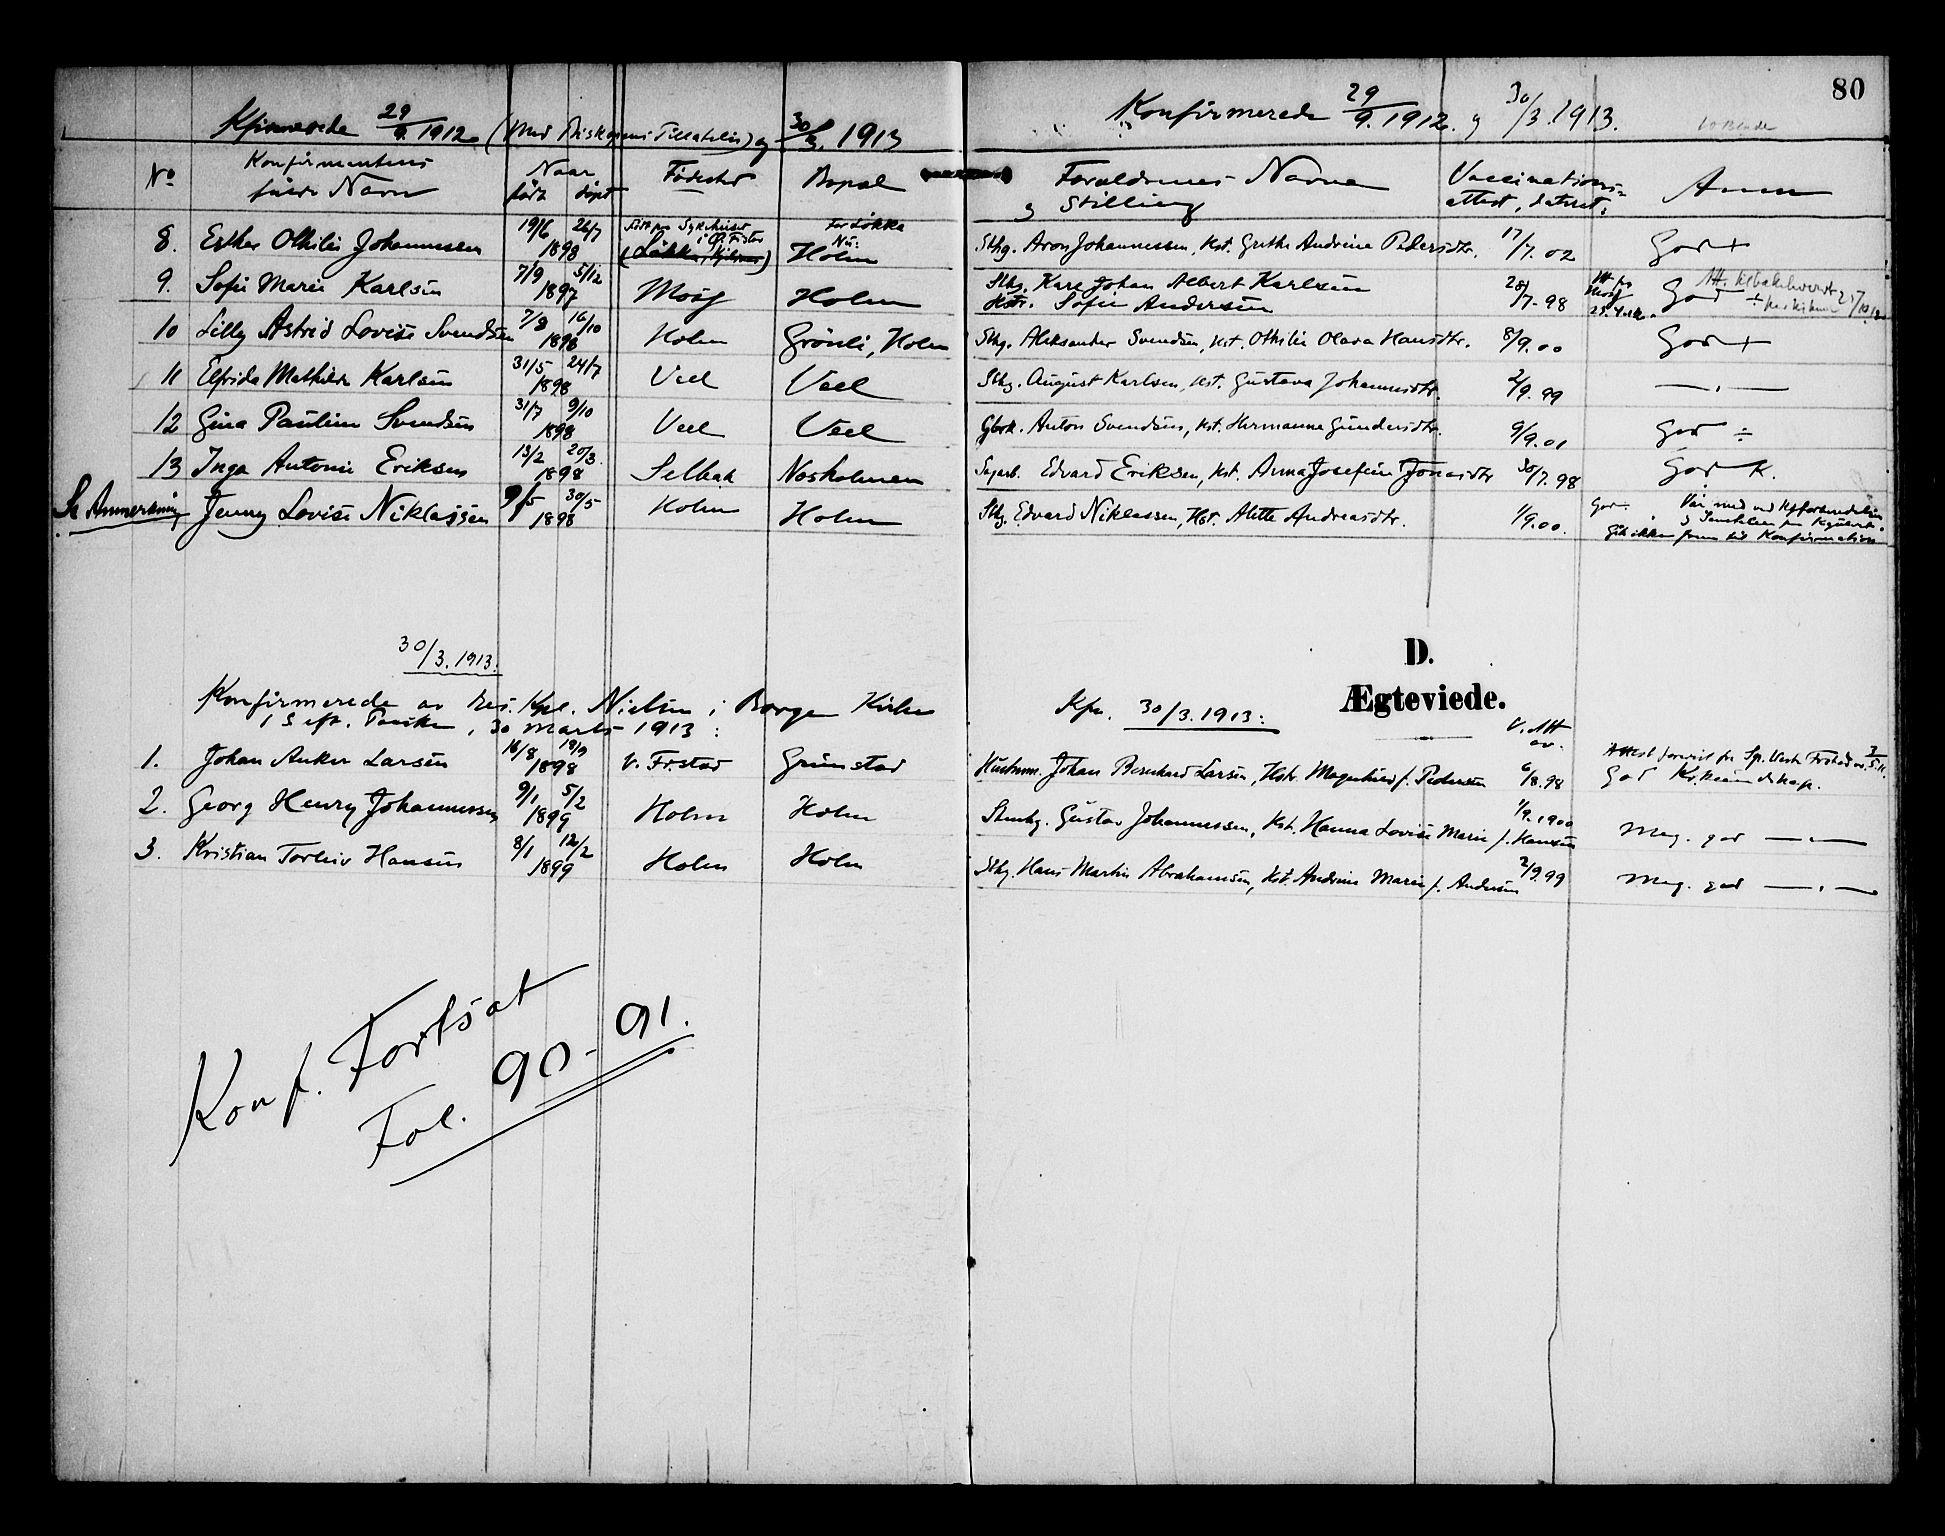 80
Kfirmerede 29/9.1912 (Med Biskopens Tilladelse) og 30/3. 1913
No Konfirmantens fulde Navn Naar født døpt Fødested Bopæl
8. Esther Othilie Johannessen 19/6 1898 26/7 Født paa Sykehuset i Fr.stad (Løkka, Kjölberg) Før Løkka Nu: Holm
9. Sofie Marie Karlsen 7/9 1897 5/12 Moss Holm
10 Lilly Astrid Lovise Svendsen 7/8 1898 16/10 Holm Grönli, Holm
11 Elfrida Mathilde Karlsen 31/5 1898 24/7 Veel Veel
12 Gina Pauline Svendsen 31/7 1898 9/10 Veel Veel
13 Inga Antonie Eriksen 13/2 1898 20/3. Selbak Nesholmen
Se Anmerkning Jenny Lovise Niklassen 9/5 1898 30/5 Holm Holm
30/3.1913.
Konfirmerede av res. Kpl. Nielsen i Borge Kirke
1 S. eft. Paaske, 30 marts 1913:
1. Johan Anker Larsen 16/8 1898 18/9 V. Fr.stad Grimstad
2. Georg Henry Johannessen 9/1 1899 5/2 Holm Holm
3. Kristian Torleiv Hansen 8/1 1899 12/2 Holm Holm
Konf. Fortsat
Fol. 90-91.
Konfirmerede 29/9.1912. og 30/3.1913.
Forældrenes Navne og Stilling Vaccinations-attest, dateret: Anm
Sthg. Aron Johannessen, Kst. Grethe Andrine Pedersdtr. 17/7.02 God +
Sthg. Karl Johan Albert Karlsen Hstr. Sofie Andersen 28/7-98 Att fra Moss God
Sthg. Aleksander Svendsen, Kst. Othilie Olava Hansdtr. 8/9.00 God +
Sthg. August Karlsen, Kst. Gustava Johannesdtr. 2/9.99 — , —
Gbrk. Anton Svendsen, Kst. Hermanne Gundersdtr. 9/9.01 God ÷
Sagarb. Edvard Eriksen, Kst. Anna Josefine Jonasdtr 30/7.98 God K.
Sthg. Edvard Niklassen, Kst. Alette Andreasdtr. 1/9.00. God. Var med ved Kfforberedelsen
Gik ikke frem til Konfirmation
D.
Ægteviede.
Kfn. 30/3.1913: V. Att av.
Hustmm. Johan Bernhard Larsen, Hstr. Magnhild f. Pedersen 6/8.98 God Kr. kundskap.
Stenhg. Gustav Johannessen, Kst. Hanna Lovise Marie f. Hansen 1/9.1900 Meg. god — , —
Sthg. Hans Martin Abrahamsen, Kst. Andrine Marie f. Andersen 2/9.99 Meg. god — , —